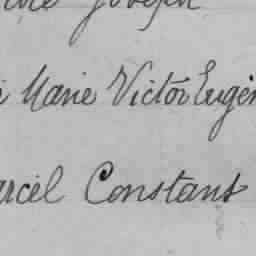 Joseph
Marie Victor Eugèn
arcel Constant